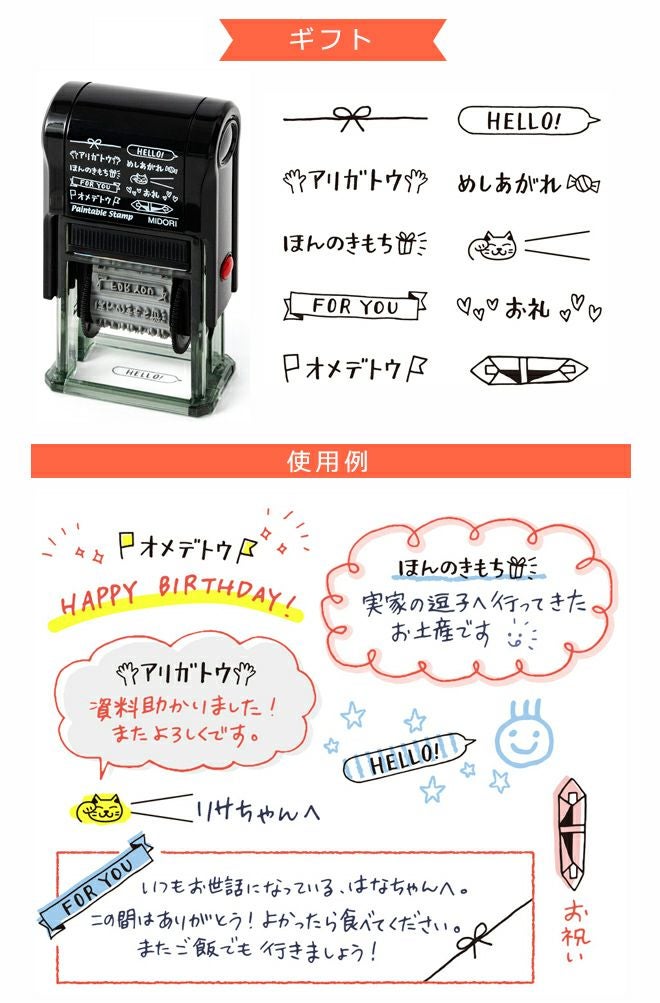 ギフト
HELLO!
アリガトウ
めしあがれ
ほんのきもち
FOR YOU
お礼
オメデトウ
Paintable Stamp
MIDORI
FOR YOU
HELLO!
HELLO!
アリガトウ
めしあがれ
ほんのきもち
FOR YOU
お礼
オメデトウ
使用例
オメデトウ
HAPPY BIRTHDAY!
ほんのきもち
実家の逗子へ行ってきた
お土産です
アリガトウ
資料助かりました!
またよろしくです。
HELLO!
リサちゃんへ
FOR YOU
いつもお世話になっている、はなちゃんへ。
この間はありがとう!よかったら食べてください。
またご飯でも行きましょう!
お祝い